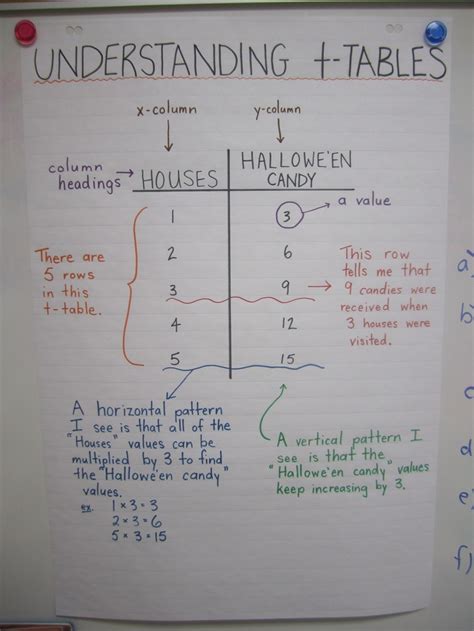 UNDERSTANDING t-TABLES
x-column
y-column
column
headings
HOUSES
HALLOWE'EN
CANDY
a value
1 3
2 6
3 9
4 12
5 15
There are
5 rows
in this
t-table.
This row
tells me that
9 candies were
received when
3 houses were
visited.
A horizontal pattern
I see is that all of the
"Houses" values can be
multiplied by 3 to find
the "Hallowe'en candy"
values.
ex. 1 × 3 = 3
2 × 3 = 6
5 × 3 = 15
A vertical pattern I
see is that the
"Hallowe'en candy" values
keep increasing by 3.
a)
b)
c
d
e)
f)